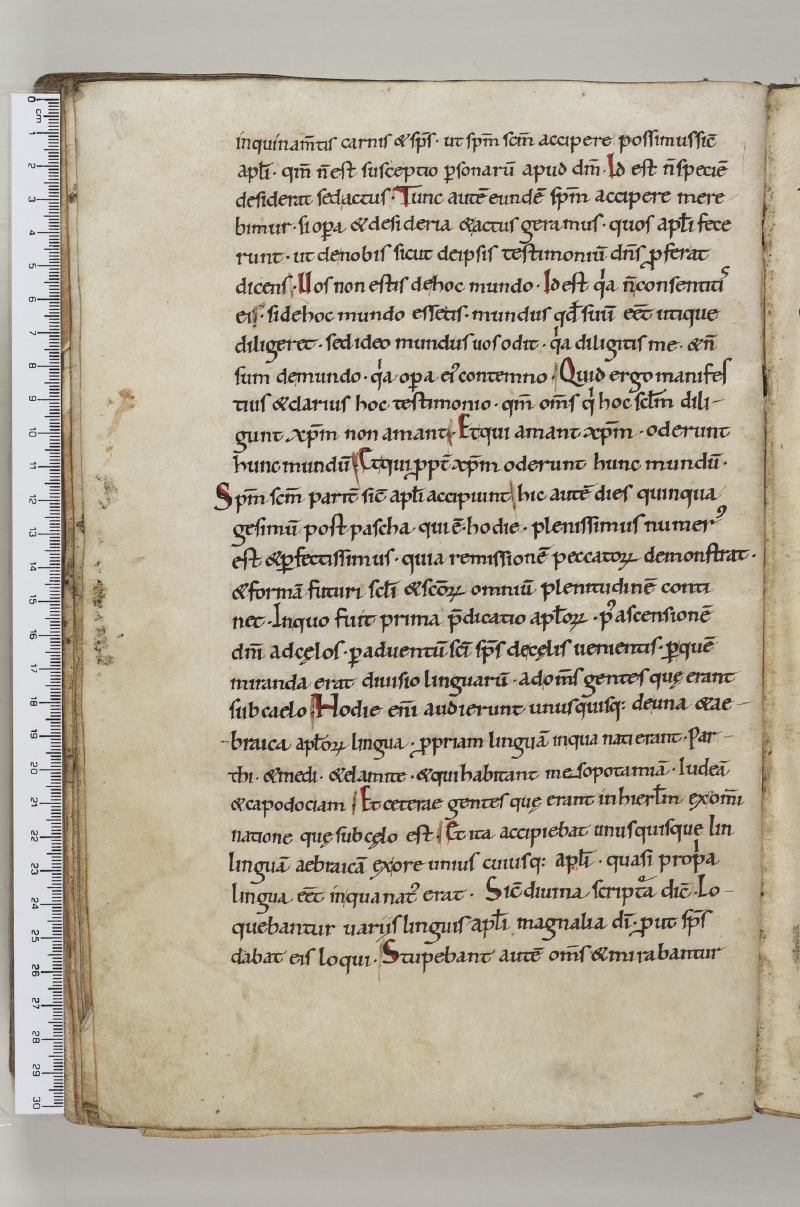 inquinam̄tis carnis &sp̄s· ut sp̄m sc̄m accipere possimussic̄
apl̄i· qm̄ n̄est susceptio p̱sonarū apud dm̄· Id est n̄speciē
desiderat sedactus· Tunc autē eundē sp̄m accipere mere
bimur· si op̱a &desideria &actus geramus· quos apl̄i fece
runt· ut denobis sicut deipsis testimoniū dn̄s p̱ferat
dicens· Uos non estis dehoc mundo· Id est qa n̄consentitꝰ
eis· sidehoc mundo essetis· mundus qd̄ suū eēt utique
diligeret· sed ideo mundus uos odit· qa diligitis me· &n̄
sum demundo· qa opa eiꝰ contemno· Quid ergo manifes
tius &clarius hoc testimonio· qm̄ om̄s q hoc scl̄m dili-
gunt xp̄m non amant· Et qui amant xp̄m· oderunt
hunc mundū Et qui ppt̄ xp̄m oderunt hunc mundū·
Sp̄m sc̄m parit̄ sic̄ apl̄i accipiunt hic autē dies quinqua
gesimū post pascha qui ē· hodie· plenissimus numerꝰ
est &p̱fectissimus· quia remissionē peccatoꝝ demonstrat·
&formā futuri scl̄i &sc̄oꝝ omniū plenitudinē conti
net· Inquo fuit prima p̄dicatio apl̄oꝝ· pꝰ ascensionē
dn̄i adcęlos· p̱aduentū sc̄i sp̄s decęlis uenientis· p̱quē
miranda erat diuisio linguarū· adom̄s gentes quę erant
sub caelo Hodie eni̅ audierunt unusquisq: deuna &ae-
-braica apl̄oꝝ lingua· ppriam linguā inqua nati erant· Par-
thi· &medi· &elamite· &qui habitant mesopotamiā· Iudeā
&capodociam Et ceterae gentes quę erant in hierl̄m ex om̄i
natione quę sub cęlo est· Et ita accipiebat unusquisque lin
linguā aebraicā ex ore unius cuiusq: apl̄i· quasi propa
lingua eēt in qua natꝰ erat· Sic̄ diuina scripta dic̄· Lo-
quebantur uariis linguis apl̄i magnalia di̅· put sp̄s
dabat eis loqui· Stupebant autē om̄s &mirabantur
0 cm 1 2 3 4 5 6 7 8 9 10 11 12 13 14 15 16 17 18 19 20 21 22 23 24 25 26 27 28 29 30